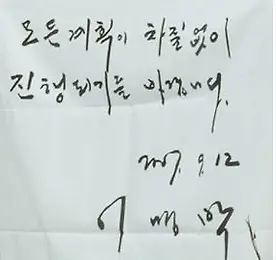 모든 계획이 차질 없이
진행되기를 바랍니다.
2007. 9. 12
이 명 박